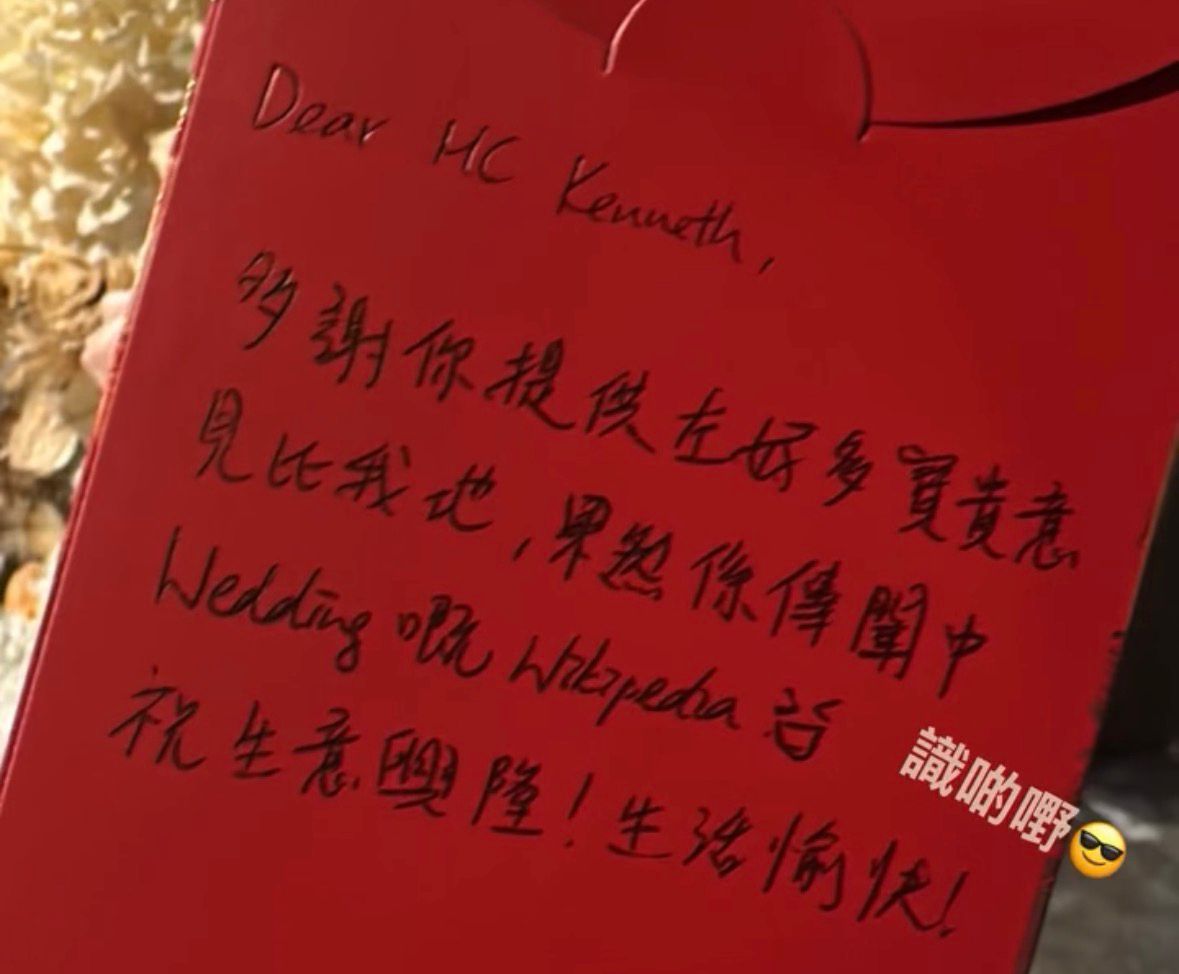 Dear MC Kenneth,
多謝你提供左好多寶貴意
見比我地,果然係傳聞中
Wedding 嘅 Wikipedia
祝生意興隆!生活愉快!
識啲嘢😎